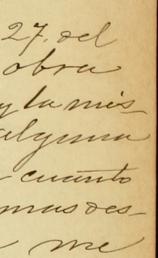 27. del
obra
y la mis-
alguna
cuanto
mas des-
me